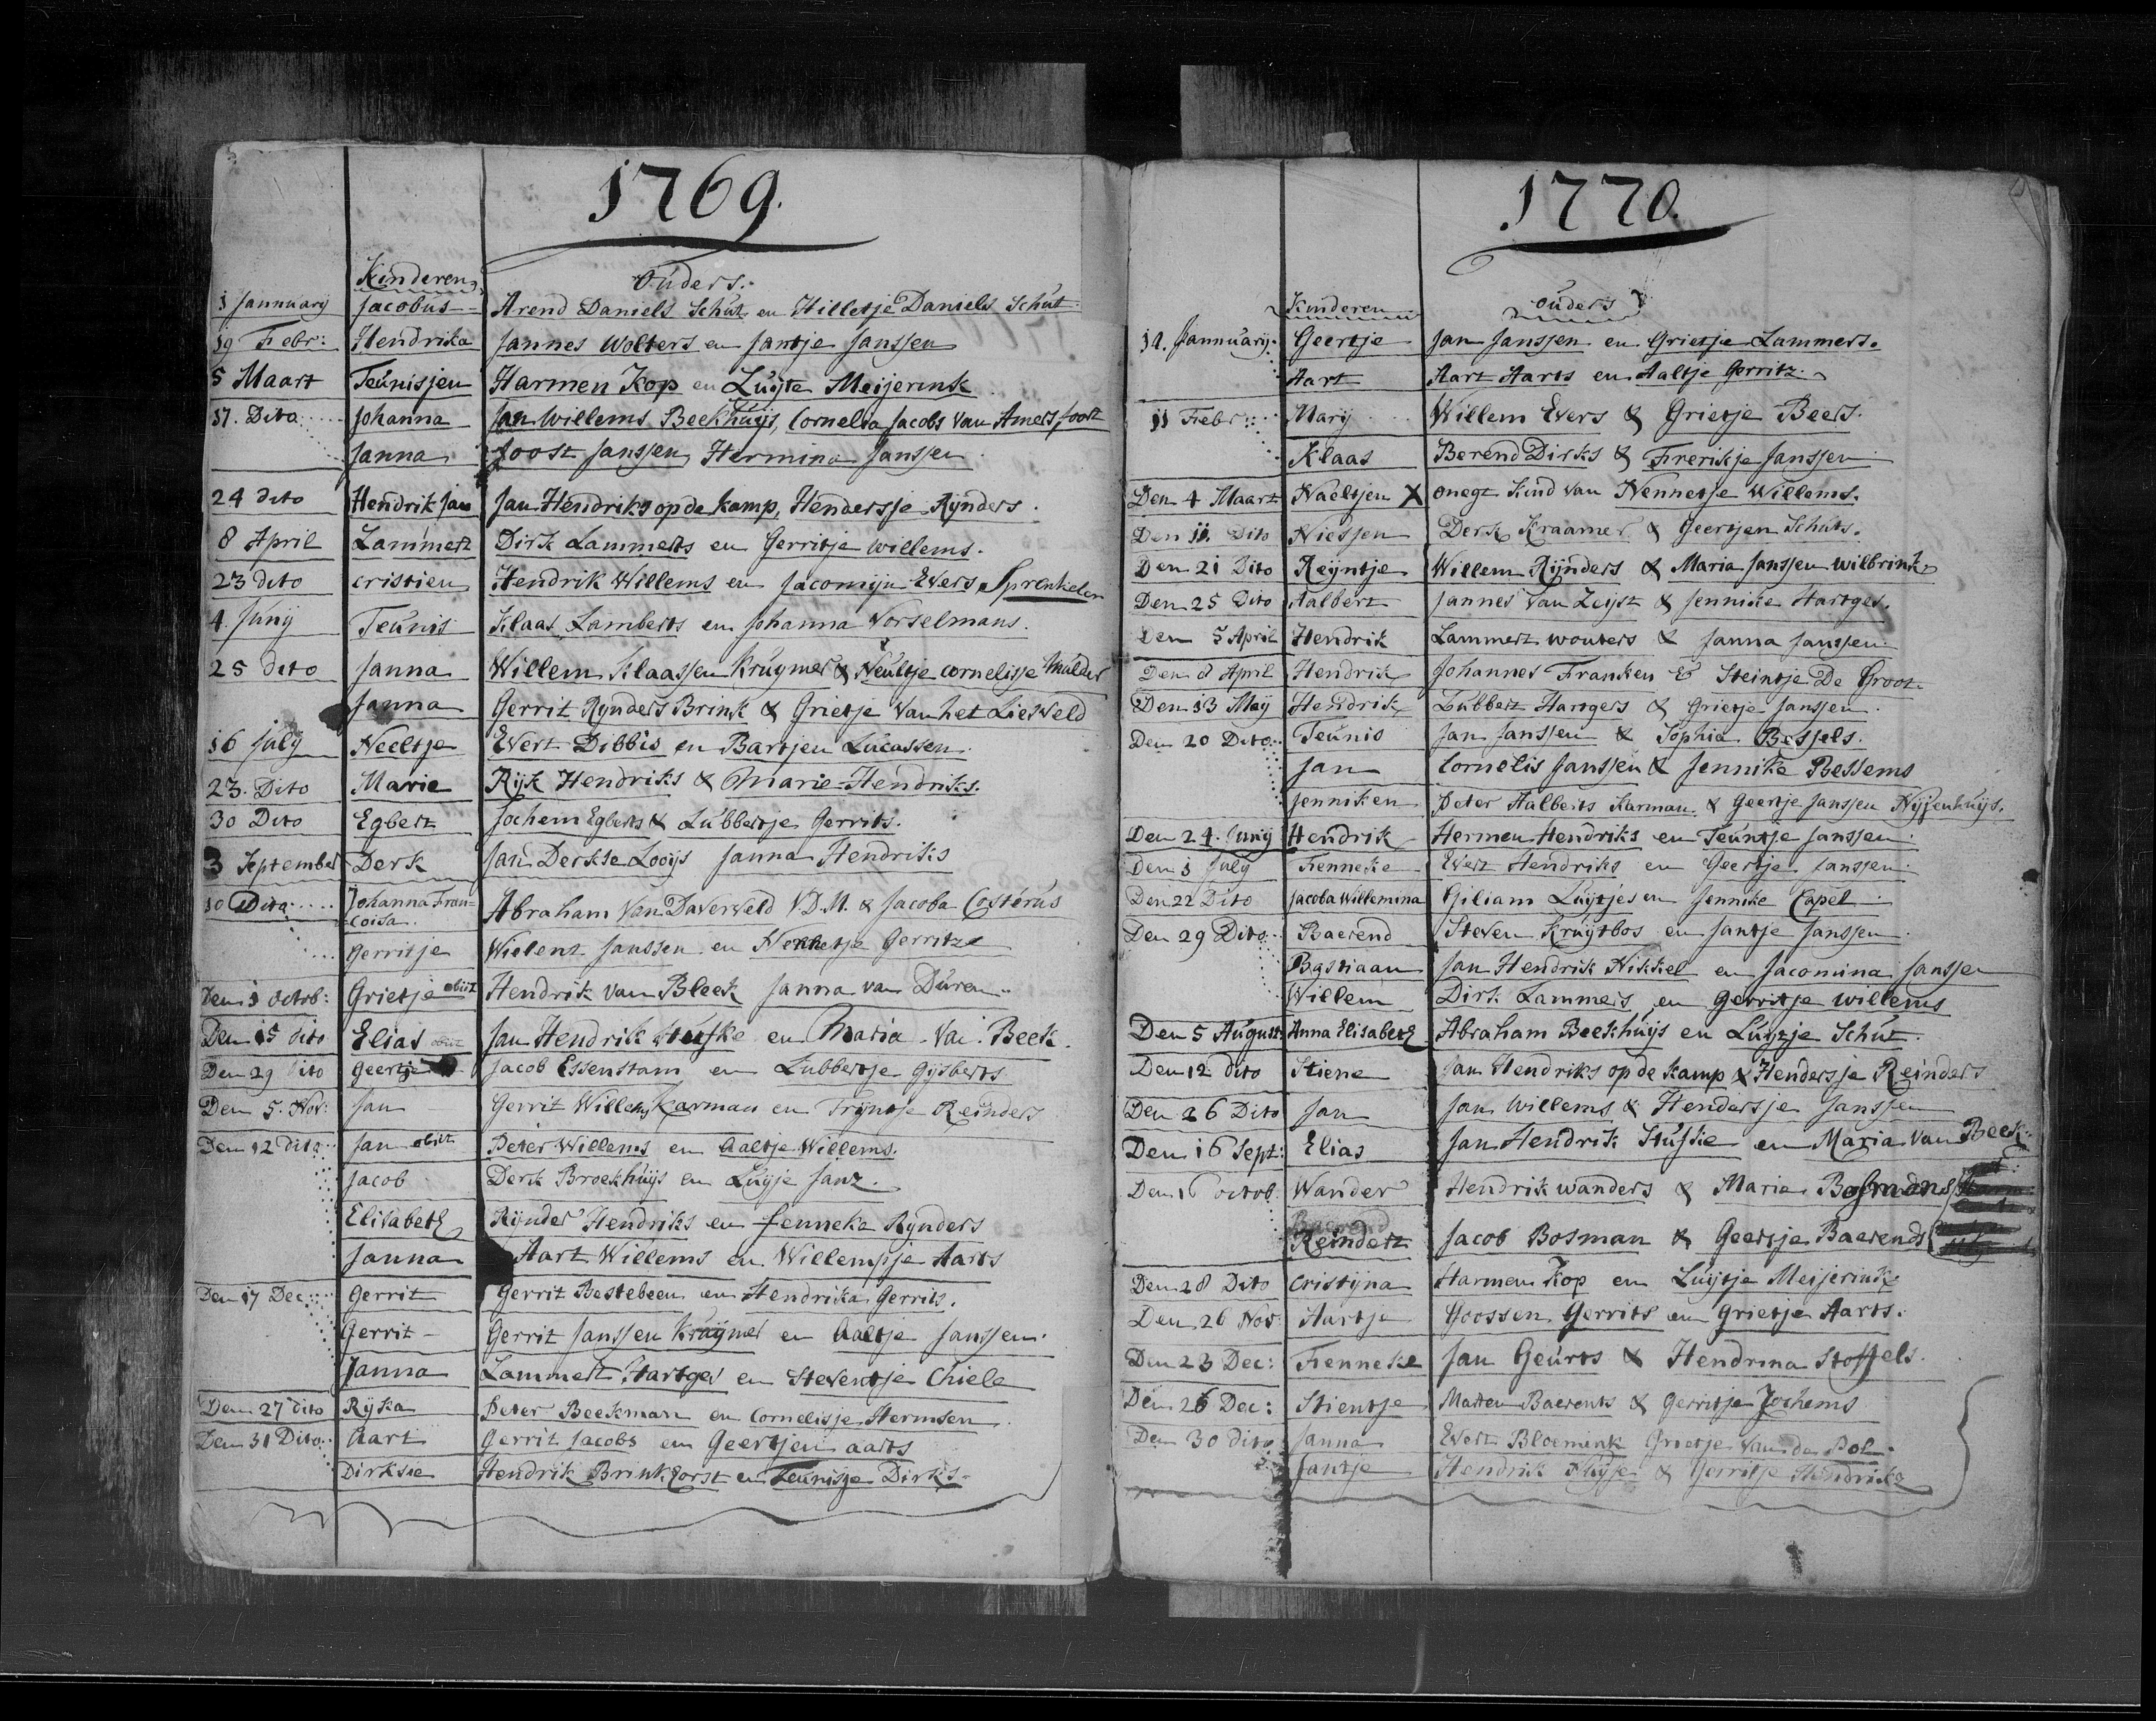 1769.
Kinderen Ouders.
1 Jannuary Jacobus Arend Daniels Schut en Hilletje Daniels Schut
19 Febr: Hendrika Jannes Wolters en Jantje Janssen
5 Maart Teunisjen Harmen Kop en Luyte Meijerink
17. Dito Johanna Jan Willems Beekhuijs, Cornelia Jacobs van Amersfoort
Janna Joost Janssen, Hermina Janssen
24 dito Hendrik Jan Jan Hendriks op de Kamp, Hendersje Rynders.
8 April Lammert Dirk Lammerts en Gerritje willems.
23 dito cristien Hendrik Willems en Jacomijn Evers Sprenkeler
4. Junij Teunis Klaas Lamberts en Johanna Norselmans.
25 dito Janna Willem Klaassen Kruymer & Neultje cornelisje Mulder
Janna Gerrit Rynders Brink & Grietje van het Liesveld
16 July Neeltje Evert Dibbis en Bartjen Lucassen.
23. Dito Marie Rijk Hendriks & Marie Hendriks.
30 Dito Egbert Jochem Egberts & Lubbertje Gerrits.
3 September Derk Jan Derkse Looijs Janna Hendriks
10 Dito Johanna Fran=
coisa. Abraham van Daverveld V.D.M. & Jacoba Costerus
Gerritje Wielent Janssen en Nennetje Gerritze
Den 1 octob: Grietje obiit Hendrik van Bleek Janna van Duren
Den 15 dito Elias obiit Jan Hendrik Stufke en Maria van Beek.
Den 29 dito Geertje Jacob Essenstam en Lubbertje Gijsberts
Den 5. Nov: Jan Gerrit Willems Karman en Trijntje Reinders
Den 12 dito Jan obiit Peter Willems en Aaltje Willems.
Jacob Derk Broekhuijs en Luyje Janz.
Elisabeth Rynder Hendriks en Jenneke Rynders
Janna Aart Willems en Willempje Aarts
Den 17 Dec: Gerrit Gerrit Bestebeen en Hendrika Gerrits.
Gerrit Gerrit Janssen Kruymer en Aaltje Janssen.
Janna Lammert Hartges en Steventje Chiele
Den 27 dito Rijka Peter Beekman en Cornelisje Hermsen
Den 31 Dito Aart Gerrit Jacobs en Geertjen aarts
Dirksie Hendrik Brinkhorst en Teunisje Dirks.
1770.
Kinderen ouders
14. Jannuary Geertje Jan Janssen en Grietje Lammert.
Aart Aart Aarts en Aaltje Gerritz.
11 Febr: Mary Willem Evers & Grietje Beers.
Klaas Berend Dirks & Frerikje Janssen
Den 4 Maart Naeltjen X onegt Kind van Nennetje Willems.
Den 11. Dito Niesjen Derk Kraamer & Geertjen Schuts.
Den 21 Dito Reijntje Willem Rijnders & Maria Janssen wilbrink
Den 25 Dito Aalbert Jannes van Zeijst & Jennike Hartges.
Den 5 April Hendrik Lammert wouters & Janna Janssen
Den 8 April Hendrik Johannes Franken & Steintje De Groot.
Den 13 Maij Hendrik Lubbert Hartgers & Grietje Janssen.
Den 20 Dito Teunis Jan Janssen & Sophia Bessels.
Jan Cornelis Janssen & Jennike Bessems
Jenniken Peter Aalberts Karman & Geertje Janssen Nijjenhuijs.
Den 24. Junij Hendrik Hermen Hendriks en Teuntje Janssen
Den 1 July Fenneke Evert Hendriks en Geertje Janssen
Den 22 Dito Jacoba Willemina Giliam Luytjes en Jennike Capel
Den 29 Dito Baerend Steven Kruytbos en Jantje Janssen
Bastiaan Jan Hendrik Nikkel en Jacomina Janssen
Willem Dirk Lammers en Gerritje willems
Den 5 August: Anna Elisabeth Abraham Beekhuijs en Luytje Schut.
Den 12 dito Stiene Jan Hendriks op de Kamp & Hendersje Reinders
Den 26 Dito Jan Jan Willems & Hendersje Janssen
Den 16 Sept: Elias Jan Hendrik Stufke en Maria van Beek.
Den octob: Wander Hendrik wanders & Marie Bosmans
Baerend
Reindert Jacob Bosman & Geertje Baerends
Den 28 Dito Cristijna Harmen Kop en Luytje Meijerink.
Den 26 Nov: Aartje Goossen Gerrits en Grietje Aarts.
Den 23 Dec: Fenneke Jan Geurts & Hendrina Stoffels.
Den 26 Dec: Stientje Marten Baerents & Gerritje Jochems
Den 30 dito Janna Evert Bloemink Grietje van de Pol.
Jantje Hendrik Fluije & Gerritje Hendriks